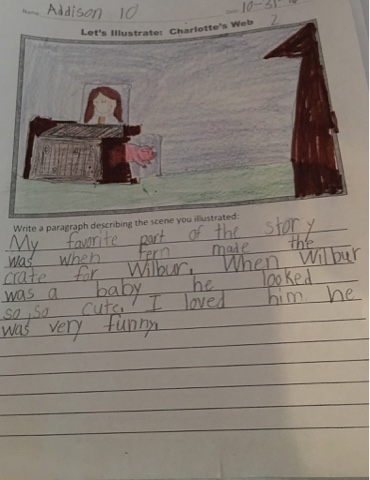 Name Addison 10 Date 10-31-
Let's Illustrate: Charlotte's Web
2
Write a paragraph describing the scene you illustrated:
My favorite part of the story
was when fern made the
crate for Wilbur. When Wilbur
was a baby he looked
so,so cute. I loved him he
was very funny.